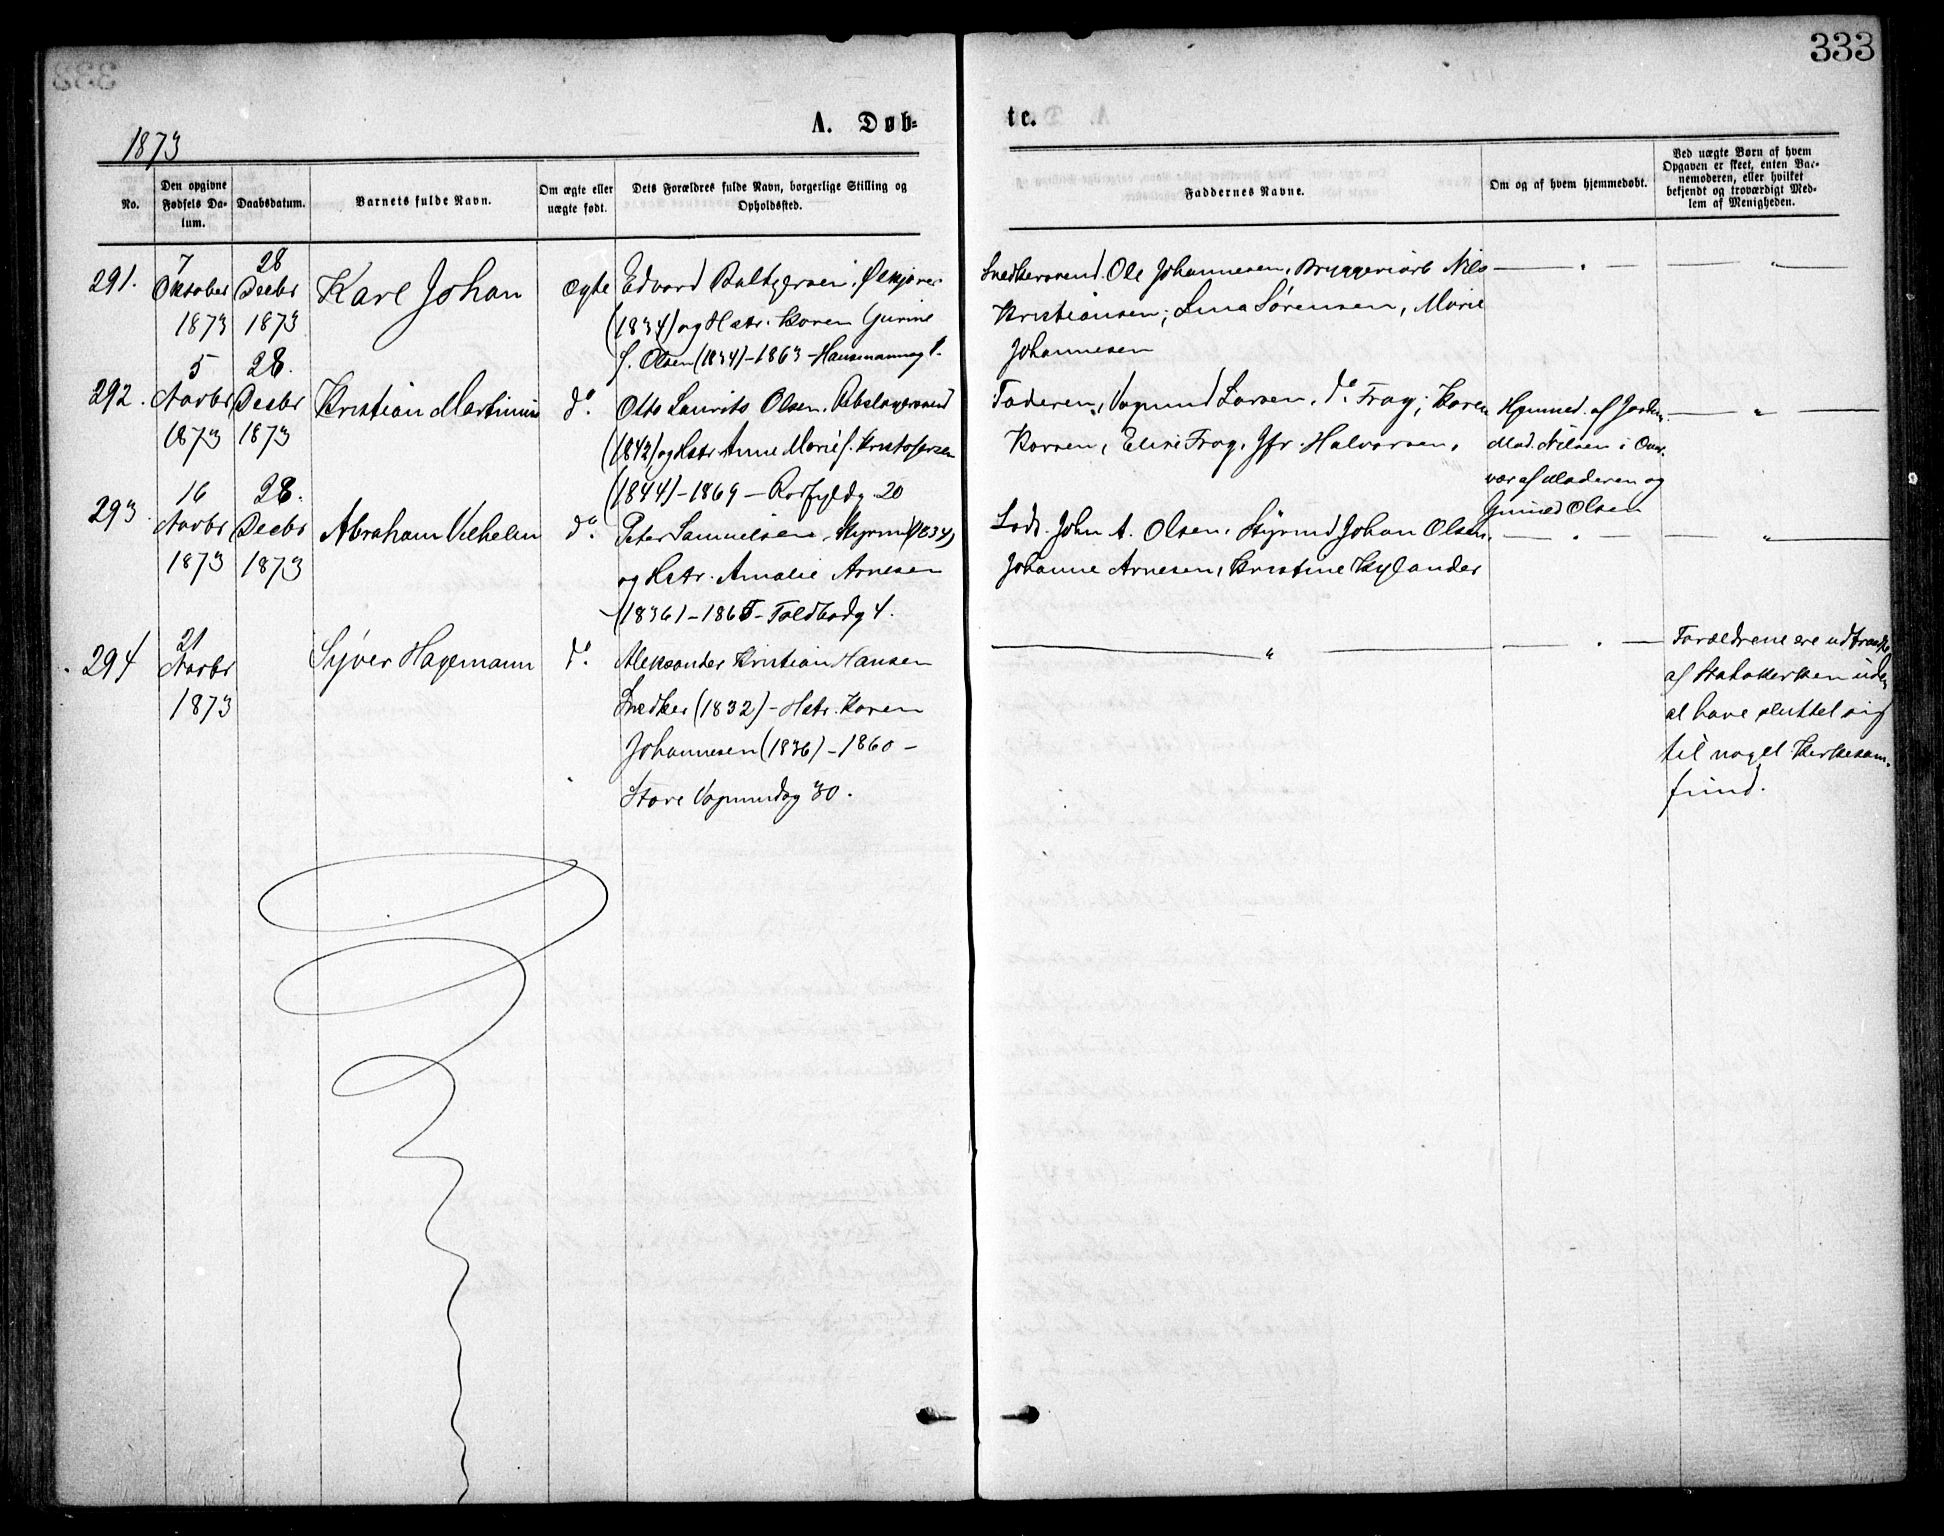 333
A. Døb-
te.
1873
No.
Den opgivne
Fødsels Da-
tum.
Daabsdatum.
Barnets fulde Navn.
Om ægte eller
uægte født.
Dets Forældres fulde Navn, borgerlige Stilling og
Opholdssted.
Faddernes Navne.
Om og af hvem hjemmedøbt.
Ved uægte Børn af hvem
Opgaven er skeet, enten Bar-
nemoderen, eller hvilket
bekjendt og troværdigt Med-
lem af Menigheden.
291.
7
Oktober
1873
28
Decbr
1873
Karl Johan
ægte
Edvard
(1834) og Hstr. Karen Gurine
f. Olsen (1834) - 1863 -
Ole Johannesen, Bryggeriarb Nils
Kristiansen, Lina Sørensen, Marie
Johannesen
292.
5
Novbr
1873
28.
Decbr
1873
Kristian Martinius
do.
Otto Laurits Olsen, Rebslagersvend
(1842) og Hstr Anne Marie f. Kristofersen
(1844) - 1869 - Rosfyldg 20
Faderen, Vognmd Larsen, do. Frog, Karen
Karsen, Elise Frog, Jfr. Halvorsen.
Hjemmed. af Jordm.
Mad. Nilsen i Over-
vær af Moderen og
Gunild Olsen
293
16
Novbr
1873
28.
Decbr
1873
Abraham Vilhelm
do.
Peter Samuelsen, Styrmd (1834)
og Hstr. Amalie Arnesen
(1836) - 1865 - Toldbodg 4.
Lods. John A. Olsen, Styrmd Johan Olsen,
Johanne Arnesen, Kristine Kylander
294
21
Novbr
1873
Syver Hagemann
do.
Aleksander Kristian Hansen
Snedker (1832) - Hstr. Karen
Johannesen (1836) - 1860 -
Store Vognmdsg 30.
Forældrene ere udtraadte
af Statskirken uden
at have sluttet sig
til noget Kirkesam-
fund.